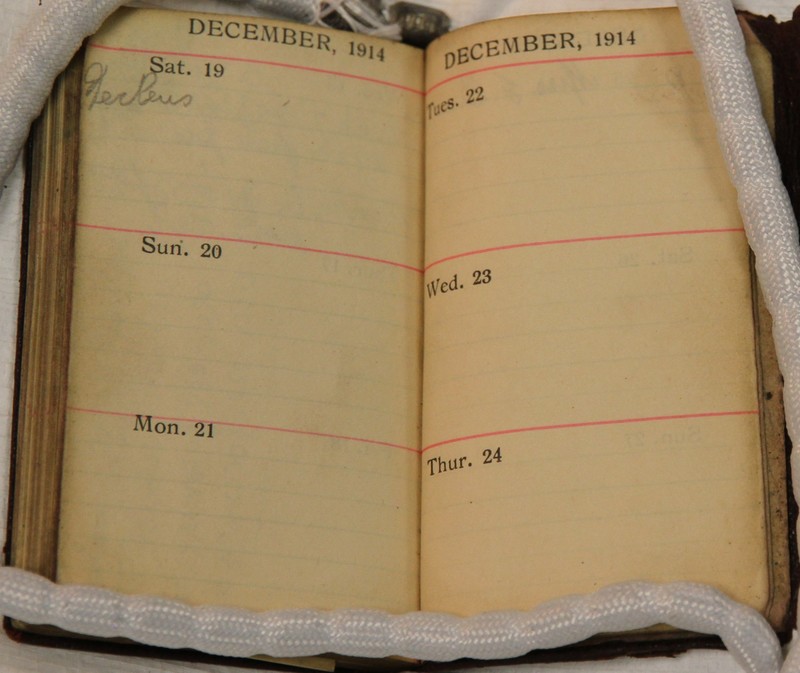 DECEMBER, 1914
Sat. 19
Sun. 20
Mon. 21
DECEMBER, 1914
Tues. 22
Wed. 23
Thur. 24